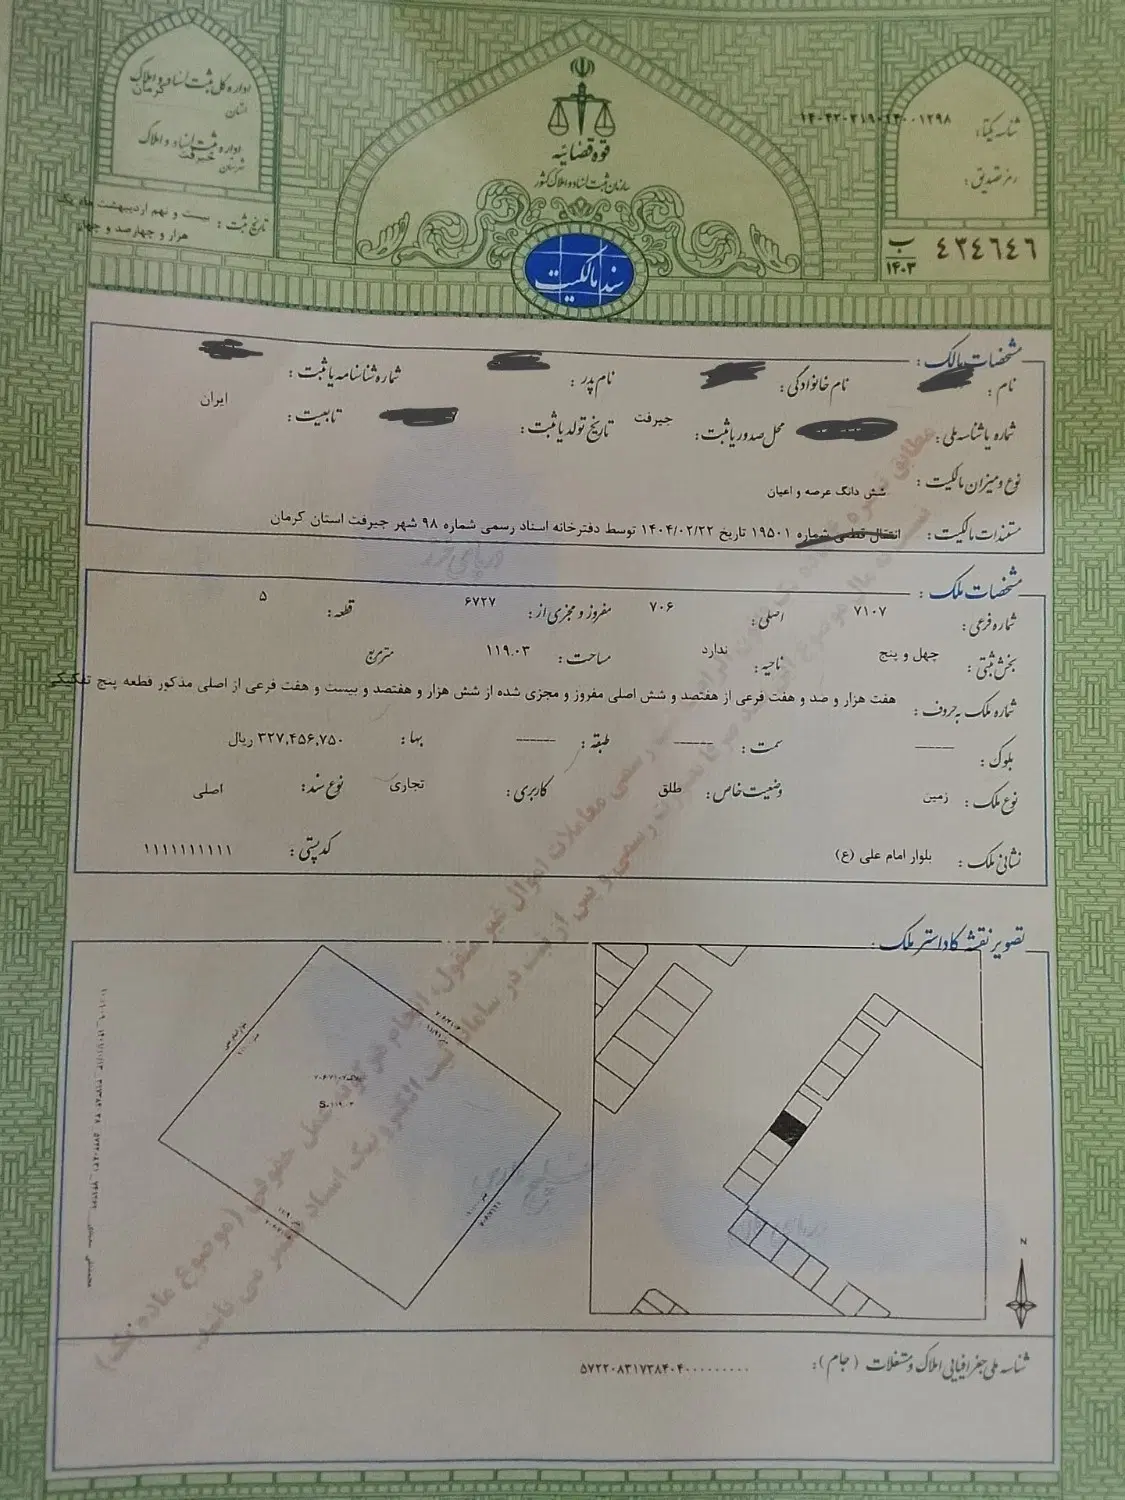 اداره کل ثبت اسناد و املاک
استان کرمان
اداره ثبت اسناد و املاک
شهرستان جیرفت
تاریخ ثبت : بیست و نهم اردیبهشت ماه یک
هزار و چهارصد و چهار
قوه قضائیه
سازمان ثبت اسناد و املاک کشور
سند مالکیت
شناسه یکتا:
رمز تصدیق :
ب
۱۴۰۳
۴۳۴۶۴۶
مشخصات مالک :
نام : نام خانوادگی : نام پدر : شماره شناسنامه یا ثبت :
شماره یا شناسه ملی : محل صدور یا ثبت : جیرفت تاریخ تولد یا ثبت : تابعیت : ایران
نوع و میزان مالکیت : شش دانگ عرصه و اعیان
مستندات مالکیت : انتقال قطعی شماره ۱۹۵۰۱ تاریخ ۱۴۰۴/۰۲/۲۲ توسط دفترخانه اسناد رسمی شماره ۹۸ شهر جیرفت استان کرمان
مشخصات ملک :
شماره فرعی : ۷۱۰۷ اصلی : ۷۰۶ مفروز و مجزی از : ۶۷۲۷ قطعه : ۵
بخش ثبتی : چهل و پنج ناحیه : ندارد مساحت : ۱۱۹.۰۳ متر مربع
شماره ملک به حروف : هفت هزار و صد و هفت فرعی از هفتصد و شش اصلی مفروز و مجزی شده از شش هزار و هفتصد و بیست و هفت فرعی از اصلی مذکور قطعه پنج تفکیکی
بلوک : سمت : طبقه : بها : ۳۲۷,۴۵۶,۷۵۰ ریال
نوع ملک : زمین وضعیت خاص : طلق کاربری : تجاری نوع سند : اصلی
نشانی ملک : بلوار امام علی (ع) کد پستی : ۱۱۱۱۱۱۱۱۱۱
تصویر نقشه کاداستر ملک :
S=۱۱۹.۰۳
N
شناسه ملی جغرافیایی املاک و مستغلات (جام) : ۵۷۲۲۰۸۳۱۷۳۸۴۰۴۰۰۰۰۰۰۰۰۰